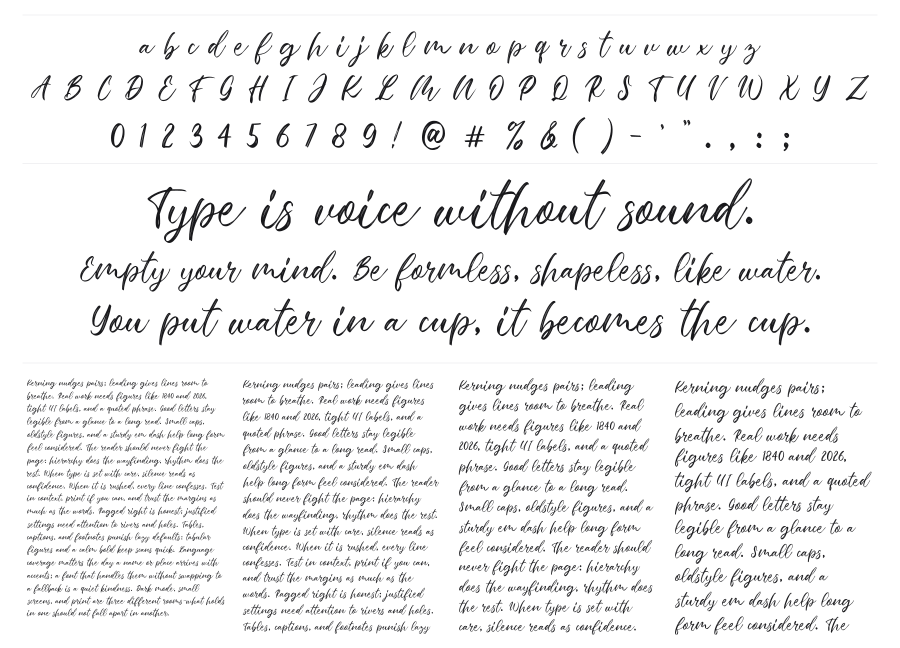 a b c d e f g h i j k l m n o p q r s t u v w x y z
A B C D E F G H I J K L M N O P Q R S T U V W X Y Z
0 1 2 3 4 5 6 7 8 9 ! @ # % & ( ) - ' " . , : ;
Type is voice without sound.
Empty your mind. Be formless, shapeless, like water.
You put water in a cup, it becomes the cup.
Kerning nudges pairs; leading gives lines room to
breathe. Real work needs figures like 1840 and 2026,
tight UI labels, and a quoted phrase. Good letters stay
legible from a glance to a long read. Small caps,
oldstyle figures, and a sturdy em dash help long form
feel considered. The reader should never fight the
page: hierarchy does the wayfinding, rhythm does the
rest. When type is set with care, silence reads as
confidence. When it is rushed, every line confesses. Test
in context, print if you can, and trust the margins as
much as the words. Ragged right is honest; justified
settings need attention to rivers and holes. Tables,
captions, and footnotes punish lazy defaults; tabular
figures and a calm bold keep scans quick. Language
coverage matters the day a name or place arrives with
accents; a font that handles them without swapping to
a fallback is a quiet kindness. Dark mode, small
screens, and print are three different rooms: what holds
in one should not fall apart in another.
Kerning nudges pairs; leading gives lines
room to breathe. Real work needs figures
like 1840 and 2026, tight UI labels, and a
quoted phrase. Good letters stay legible
from a glance to a long read. Small caps,
oldstyle figures, and a sturdy em dash
help long form feel considered. The reader
should never fight the page: hierarchy
does the wayfinding, rhythm does the rest.
When type is set with care, silence reads as
confidence. When it is rushed, every line
confesses. Test in context, print if you can,
and trust the margins as much as the
words. Ragged right is honest; justified
settings need attention to rivers and holes.
Tables, captions, and footnotes punish lazy
Kerning nudges pairs; leading
gives lines room to breathe. Real
work needs figures like 1840 and
2026, tight UI labels, and a quoted
phrase. Good letters stay legible
from a glance to a long read.
Small caps, oldstyle figures, and a
sturdy em dash help long form
feel considered. The reader should
never fight the page: hierarchy
does the wayfinding, rhythm does
the rest. When type is set with
care, silence reads as confidence.
Kerning nudges pairs;
leading gives lines room to
breathe. Real work needs
figures like 1840 and 2026,
tight UI labels, and a quoted
phrase. Good letters stay
legible from a glance to a
long read. Small caps,
oldstyle figures, and a
sturdy em dash help long
form feel considered. The